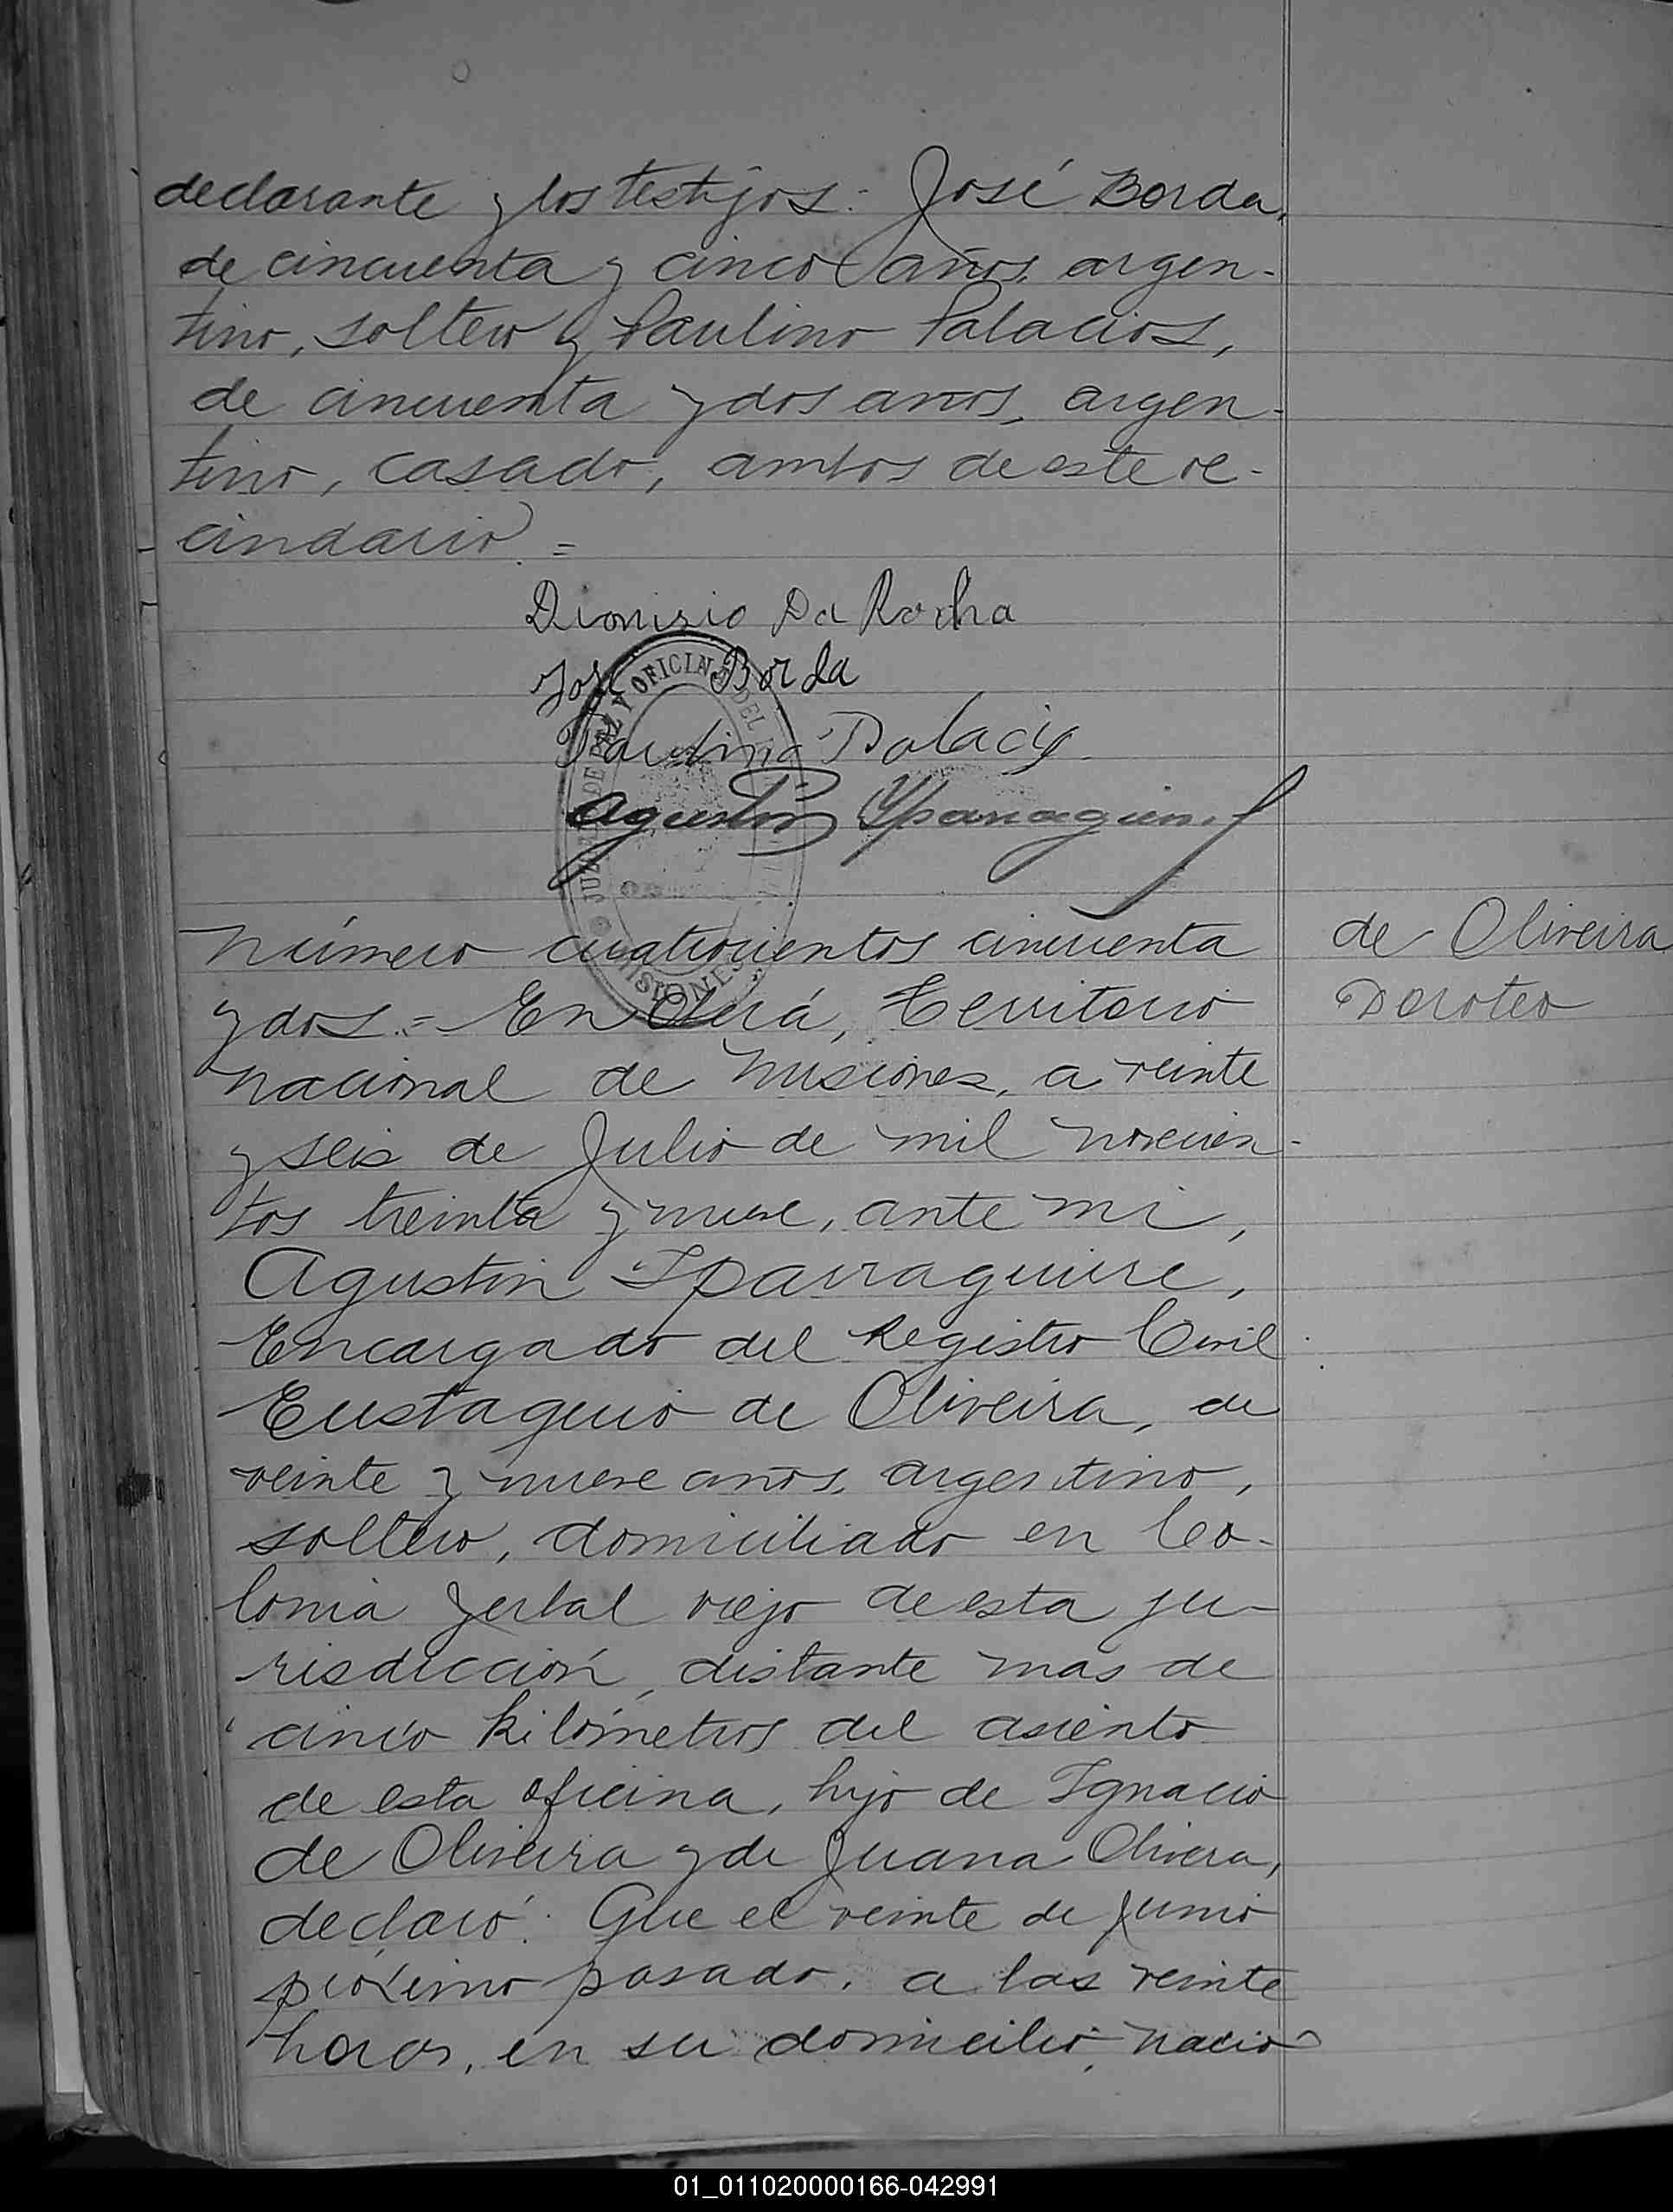 declarante y los testigos: José Borda,
de cincuenta y cinco años, argen-
tino, soltero y Paulino Palacios,
de cincuenta y dos años, argen-
tino, casado, ambos de este ve-
cindario. =
Dionisio Da Rocha
José Borda
Paulino Palacios
Agustín Yparraguirre
JUZGADO DE PAZ Y OFICINA DEL
MISIONES
de Oliveira
Doroteo
Número cuatrocientos cincuenta
y dos.= En Oberá, Territorio
nacional de Misiones, a veinte
y seis de Julio de mil novecien-
tos treinta y nueve, ante mi,
Agustín Iparraguirre,
Encargado del Registro Civil
Eustaquio de Oliveira, de
veinte y nueve años, argentino,
soltero, domiciliado en Co-
lonia Yerbal viejo de esta ju-
risdicción, distante mas de
cinco kilómetros del asiento
de esta oficina, hijo de Ignacio
de Oliveira y de Juana Olivera,
declaró: Que el veinte de Junio
próximo pasado, a las veinte
horas, en su domicilio, nació
01_011020000166-042991